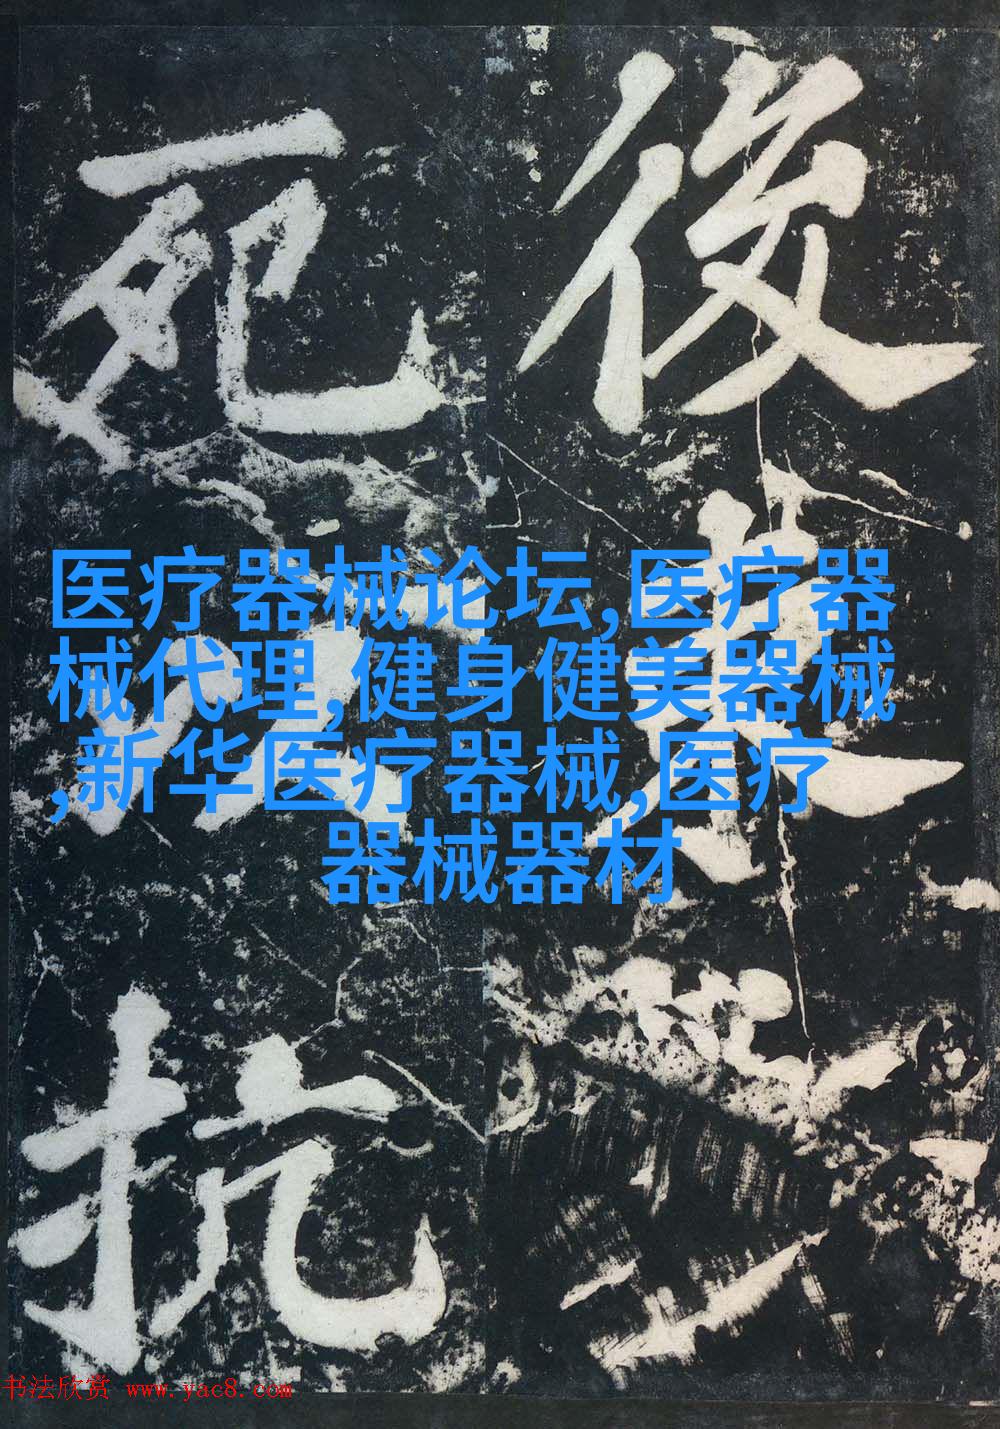 後
死
医疗器械论坛,医疗器
械代理,健身健美器械
,新华医疗器械,医疗
器械器材
抗
书法欣赏 www.yac8.com